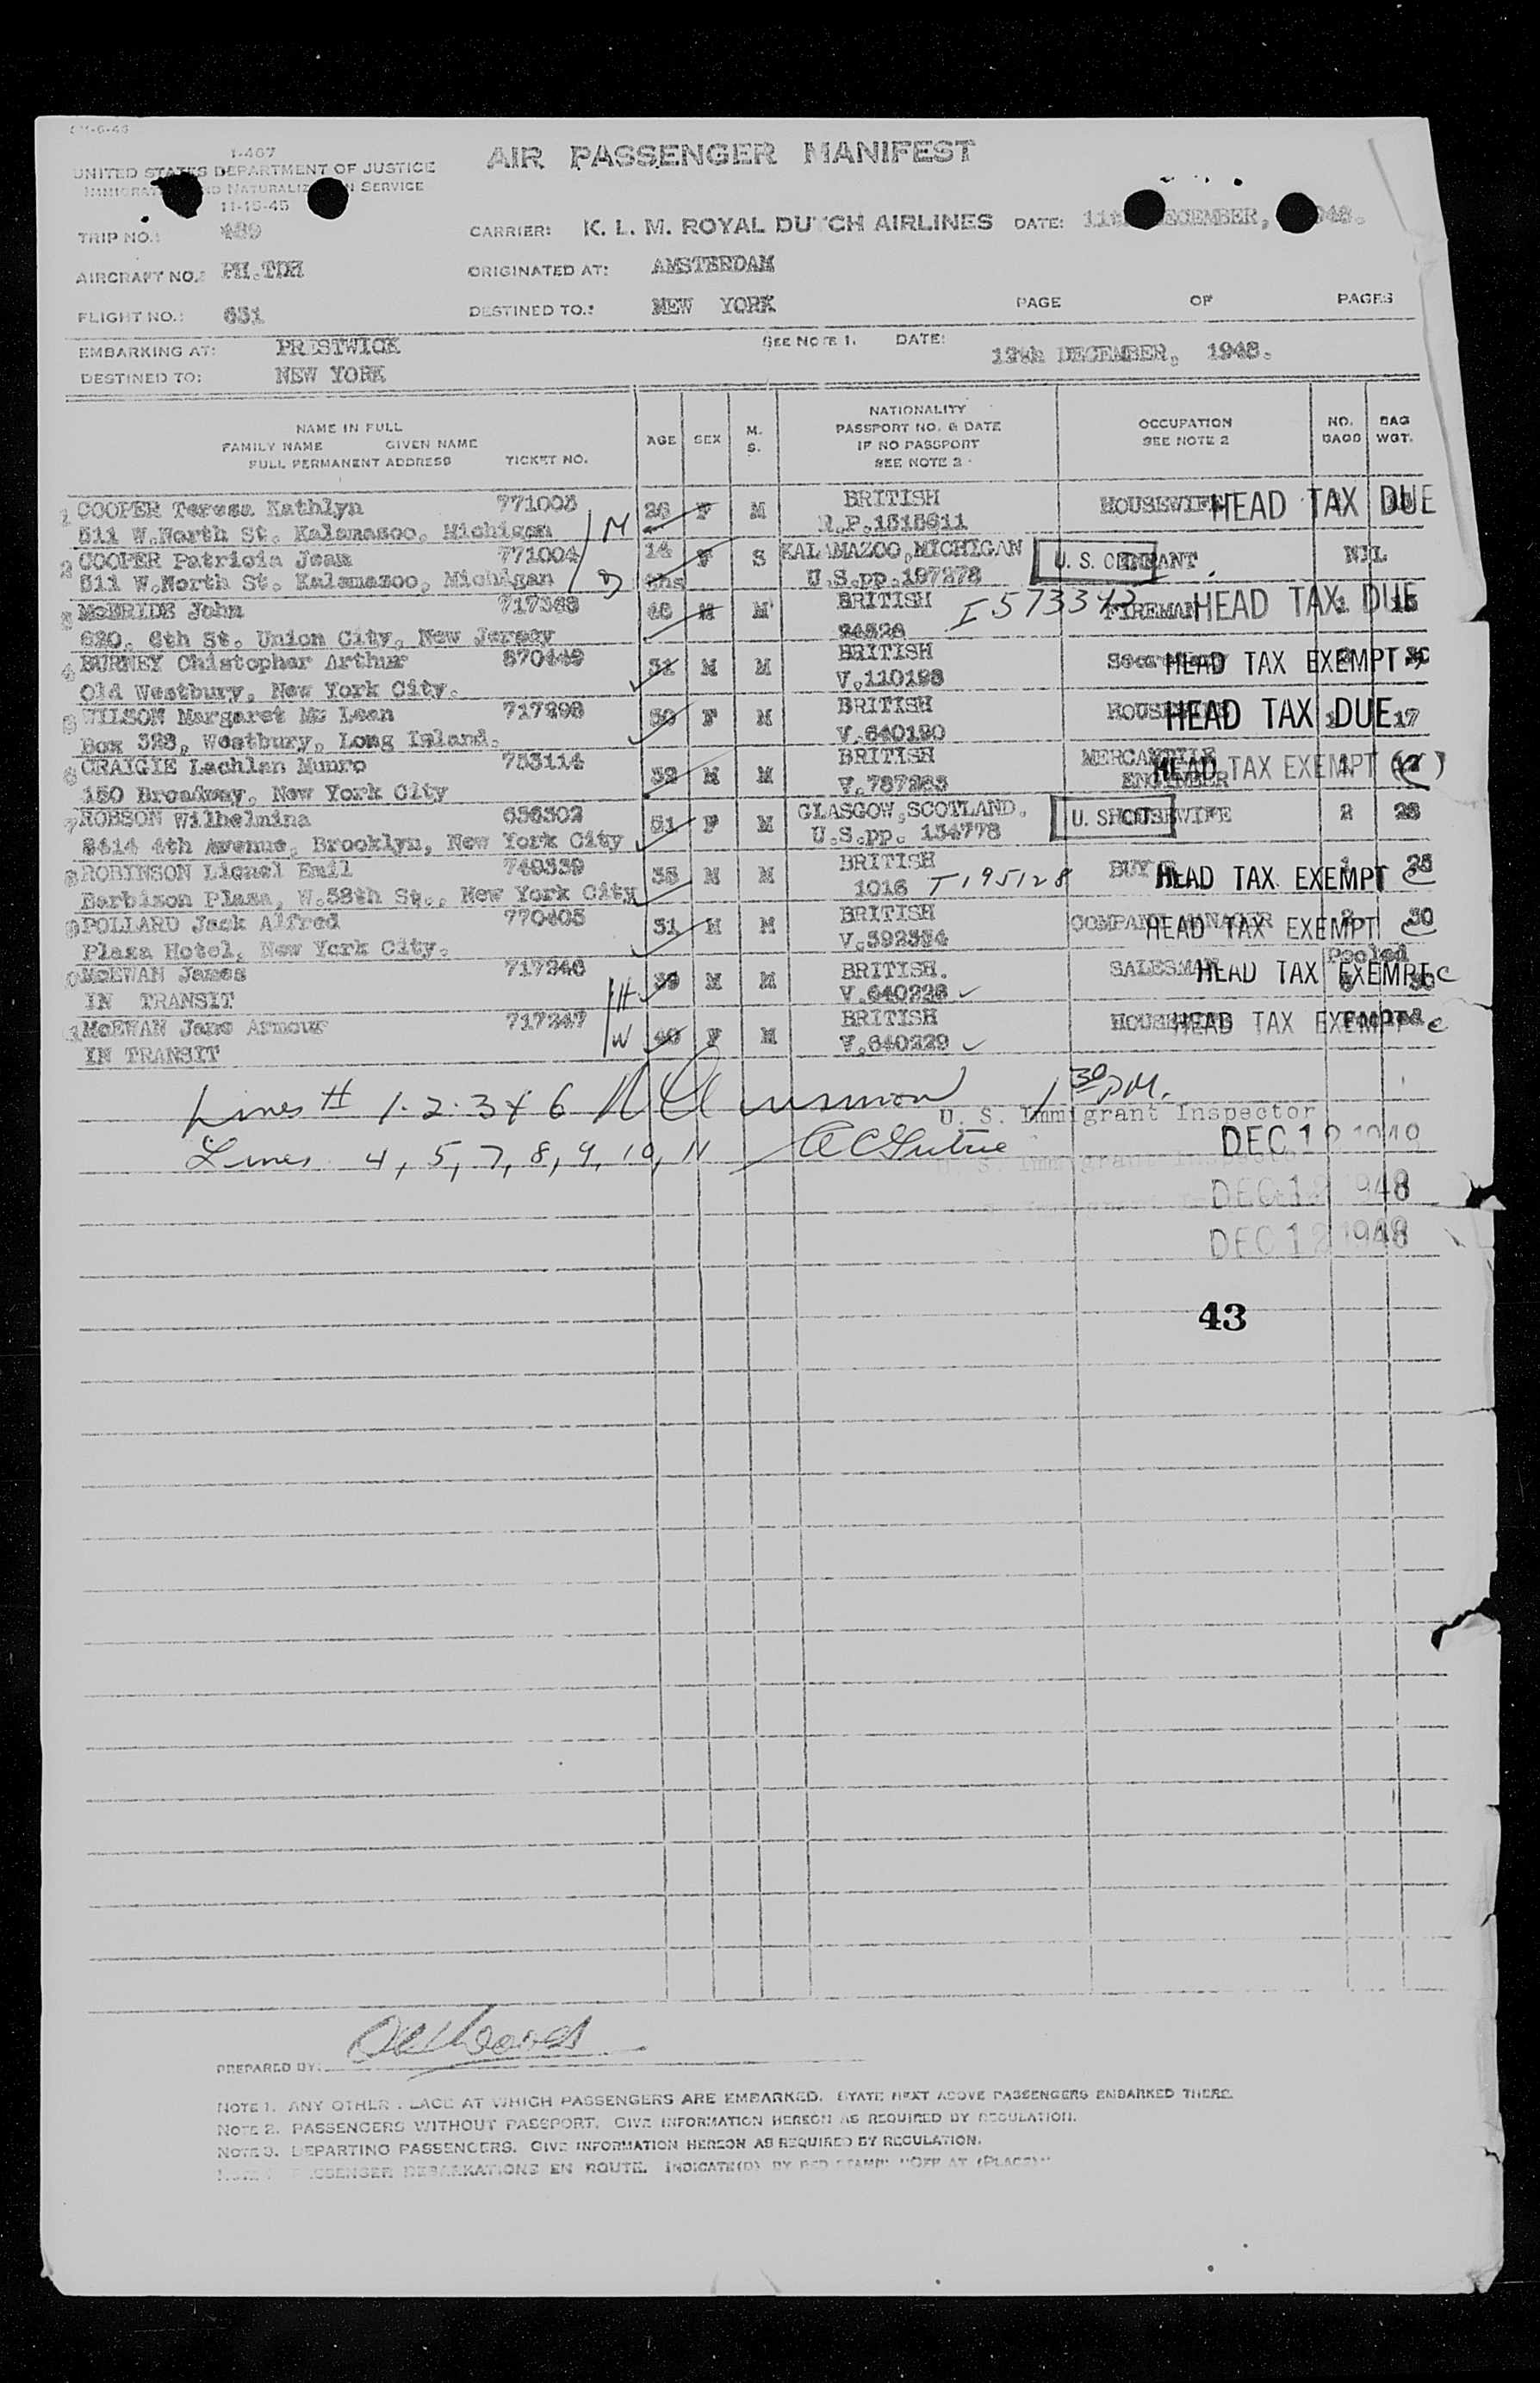 1-467
UNITED STATES DEPARTMENT OF JUSTICE
SERVICE
11-15-45
AIR PASSENGER MANIFEST
TRIP NO.:
CARRIER: K. L. M. ROYAL DUTCH AIRLINES DATE: 11th DECEMBER, 1948.
AIRCRAFT NO.: PH.TDH
ORIGINATED AT: AMSTERDAM
FLIGHT NO.: 631
DESTINED TO.: NEW YORK
PAGE OF PAGES
EMBARKING AT: PRESTWICK
SEE NOTE 1. DATE: 12th DECEMBER, 1948.
DESTINED TO: NEW YORK
NAME IN FULL
FAMILY NAME GIVEN NAME
FULL PERMANENT ADDRESS TICKET NO.
AGE SEX M. S.
NATIONALITY
PASSPORT NO. & DATE
IF NO PASSPORT
SEE NOTE 2
OCCUPATION
SEE NOTE 2
NO. BAGS
BAG WGT.
1 COOPER Teresa Kathlyn 771003 26 F M BRITISH HOUSEWIFE HEAD TAX DUE
511 W.North St. Kalamazoo, Michigan M R.P.1515611
2 COOPER Patricia Jean 771004 14 F S KALAMAZOO,MICHIGAN U. S. CIT NIL
511 W.North St. Kalamazoo, Michigan D ths U.S.pp.197278
3 McBRIDE John 717368 46 M M BRITISH I573342 FIREMAN HEAD TAX DUE 15
620. 6th St. Union City, New Jersey 94526
4 BURNEY Chistopher Arthur 870449 31 M M BRITISH HEAD TAX EXEMPT
Old Westbury, New York City. V.110198
5 WILSON Margaret Mc Lean 717298 50 F M BRITISH HEAD TAX DUE 17
Box 328, Westbury, Long Island. V.640190
6 CRAIGIE Lachlan Munro 753114 32 M M BRITISH MERCANTILE HEAD TAX EXEMPT
150 Broadway, New York City V.787263 ENGINEER
7 ROBSON Wilhelmina 636302 51 F M GLASGOW,SCOTLAND. U. S. CIT HOUSEWIFE 2 28
8414 4th Avenue, Brooklyn, New York City U.S.pp. 134778
8 ROBINSON Lionel Emil 740339 35 M M BRITISH HEAD TAX EXEMPT 25 C
Barbizon Plaza, W.58th St., New York City 1016 T195128
9 POLLARD Jack Alfred 770405 31 M M BRITISH COMPANY MANAGER HEAD TAX EXEMPT 30 C
Plaza Hotel, New York City. V.392334
McEWAN James 717246 39 M M BRITISH. SALESMAN Pooled HEAD TAX EXEMPT C
IN TRANSIT H V.640228
McEWAN Jane Armour 717247 40 F M BRITISH HOUSEWIFE HEAD TAX EXEMPT C
IN TRANSIT W V.640229
Lines # 1.2.3 & 6 1 30 P.M.
U. S. Immigrant Inspector
Lines 4, 5, 7, 8, 9, 10, 11
DEC 12 1948
DEC 12 1948
DEC 12 1948
43
PREPARED BY:
NOTE 1. ANY OTHER PLACE AT WHICH PASSENGERS ARE EMBARKED. STATE NEXT ABOVE PASSENGERS EMBARKED THERE.
NOTE 2. PASSENGERS WITHOUT PASSPORT. GIVE INFORMATION HEREON AS REQUIRED BY REGULATION.
NOTE 3. DEPARTING PASSENGERS. GIVE INFORMATION HEREON AS REQUIRED BY REGULATION.
PASSENGER DEBARKATIONS EN ROUTE. INDICATE(D) BY RED STAMP "OFF AT (PLACE)"